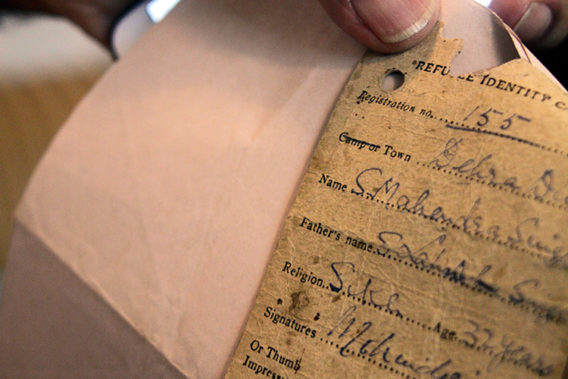 REFUGEE IDENTITY C
Registration no. 155
Camp or Town Dehra D
Name S. Mahendra Singh
Father's name S.
Religion Sikh Age 32 years
Signatures Mohinder
Or Thumb
Impres